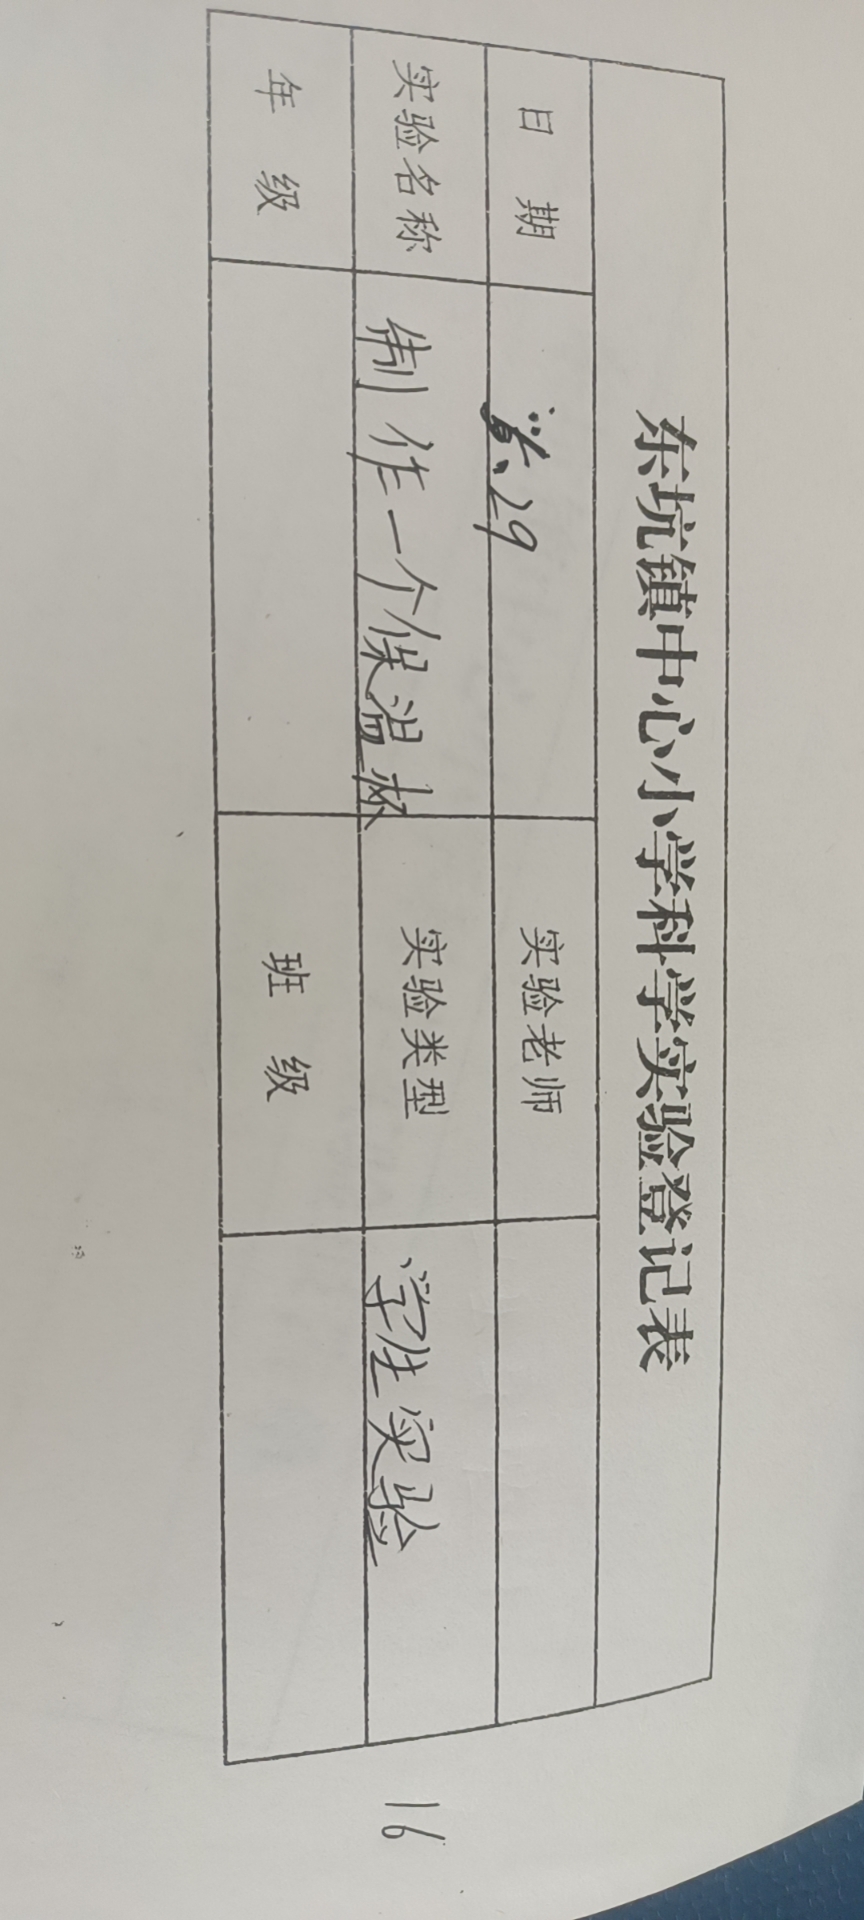 东坑镇中心小学科学实验登记表
日 期 29 实验老师
实验名称 制作一个保温杯 实验类型 学生实验
年 级 班 级
16